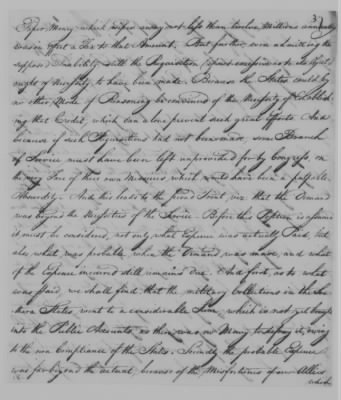 37
Paper Money which wipes away not less than twelve Millions annually
was in effect a Tax to that Amount. But further, even admitting the
supposed Inability still the Requisition
ought of Necessity to have been made. Because the States could by
no other Mode of Reasoning be convinced of the Necessity of establish
ing that Credit, which can alone prevent such great efforts. And
because if such Requisitions had not been made some Branch
of Service must have been left unprovided for by Congress, on
the very Face of their own Measures, which would have been a palpable
Absurdity. And this leads to the second Point, viz. that the Demand
was beyond the Necessities of the Service. Before this Position is assumed
it must be considered, not only what Expence was actually Paid, but
also what was probable when the Demand was made, and what
of the Expence incurred still remains Due. And first, as to what
was paid, we shall find that the military Collections in the Sou
thern States went to a considerable Sum, which is not yet brought
into the Public Accounts, as there was no Money to defray it, owing
to the non Compliance of the States. Secondly the probable Expence
was far beyond the actual, because of the Misfortunes of our Allies
which